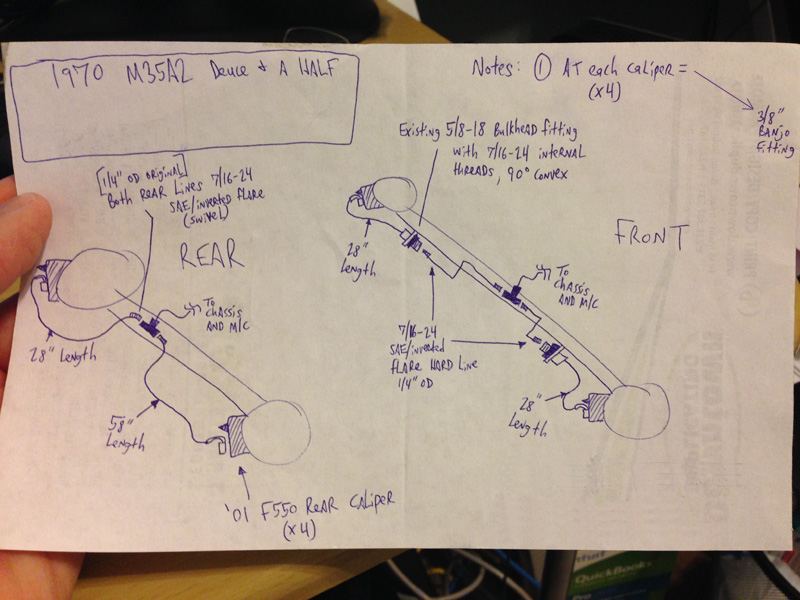 1970 M35A2 Deuce & A HALF
Notes: ① AT each caliper =
(x4)
3/8"
BANJO
Fitting
Existing 5/8-18 Bulkhead fitting
with 7/16-24 internal
threads, 90° convex
[1/4" OD original]
Both REAR Lines 7/16-24
SAE/inverted flare
(swivel)
REAR
FRONT
28"
Length
To
chassis
AND M/C
To
chassis
AND M/C
28" Length
7/16-24
SAE/inverted
flare HARD Line
1/4" OD
28"
Length
58"
Length
'01 F550 Rear Caliper
(x4)
QuickBooks
Pro